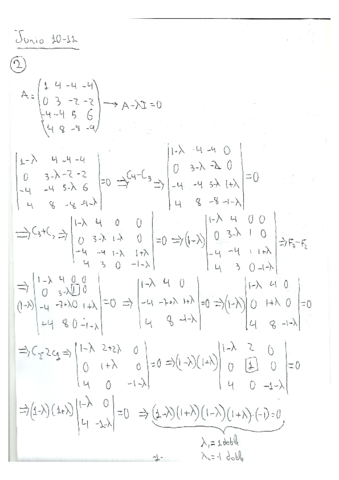 Junio 10-11
2
A = ( 1 4 -4 -4 ; 0 3 -2 -2 ; -4 -4 5 6 ; 4 8 -8 -9 ) → A-λI=0
| 1-λ 4 -4 -4 ; 0 3-λ -2 -2 ; -4 -4 5-λ 6 ; 4 8 -8 -9-λ | =0 ⇒ C4-C3 ⇒ | 1-λ 4 -4 0 ; 0 3-λ -2 0 ; -4 -4 5-λ 1+λ ; 4 8 -8 -1-λ | =0
⇒ | 1-λ 4 0 0 ; 0 3-λ 1-λ 0 ; -4 -4 1-λ 1+λ ; 4 8 0 -1-λ | =0 ⇒ (1-λ) | 1-λ 4 0 0 ; 0 3-λ 1 0 ; -4 -4 1 1+λ ; 4 8 0 -1-λ | ⇒ F3-F2
⇒ (1-λ) | 1-λ 4 0 0 ; 0 3-λ 1 0 ; -4 -7+λ 0 1+λ ; 4 8 0 -1-λ | =0 ⇒ | 1-λ 4 0 ; -4 -7+λ 1+λ ; 4 8 -1-λ | =0 ⇒ (1-λ) | 1-λ 4 0 ; 0 1+λ 0 ; 4 8 -1-λ | =0
⇒ | 1-λ 2+2λ 0 ; 0 1+λ 0 ; 4 0 -1-λ | =0 ⇒ (1-λ)(1+λ) | 1-λ 2 0 ; 0 1 0 ; 4 0 -1-λ | =0
⇒ (1-λ)(1+λ) | 1-λ 0 ; 4 -1-λ | =0 ⇒ (1-λ)(1+λ)(1-λ)(1+λ)·(-1)=0
λ₁=1 doble
λ=-1 doble